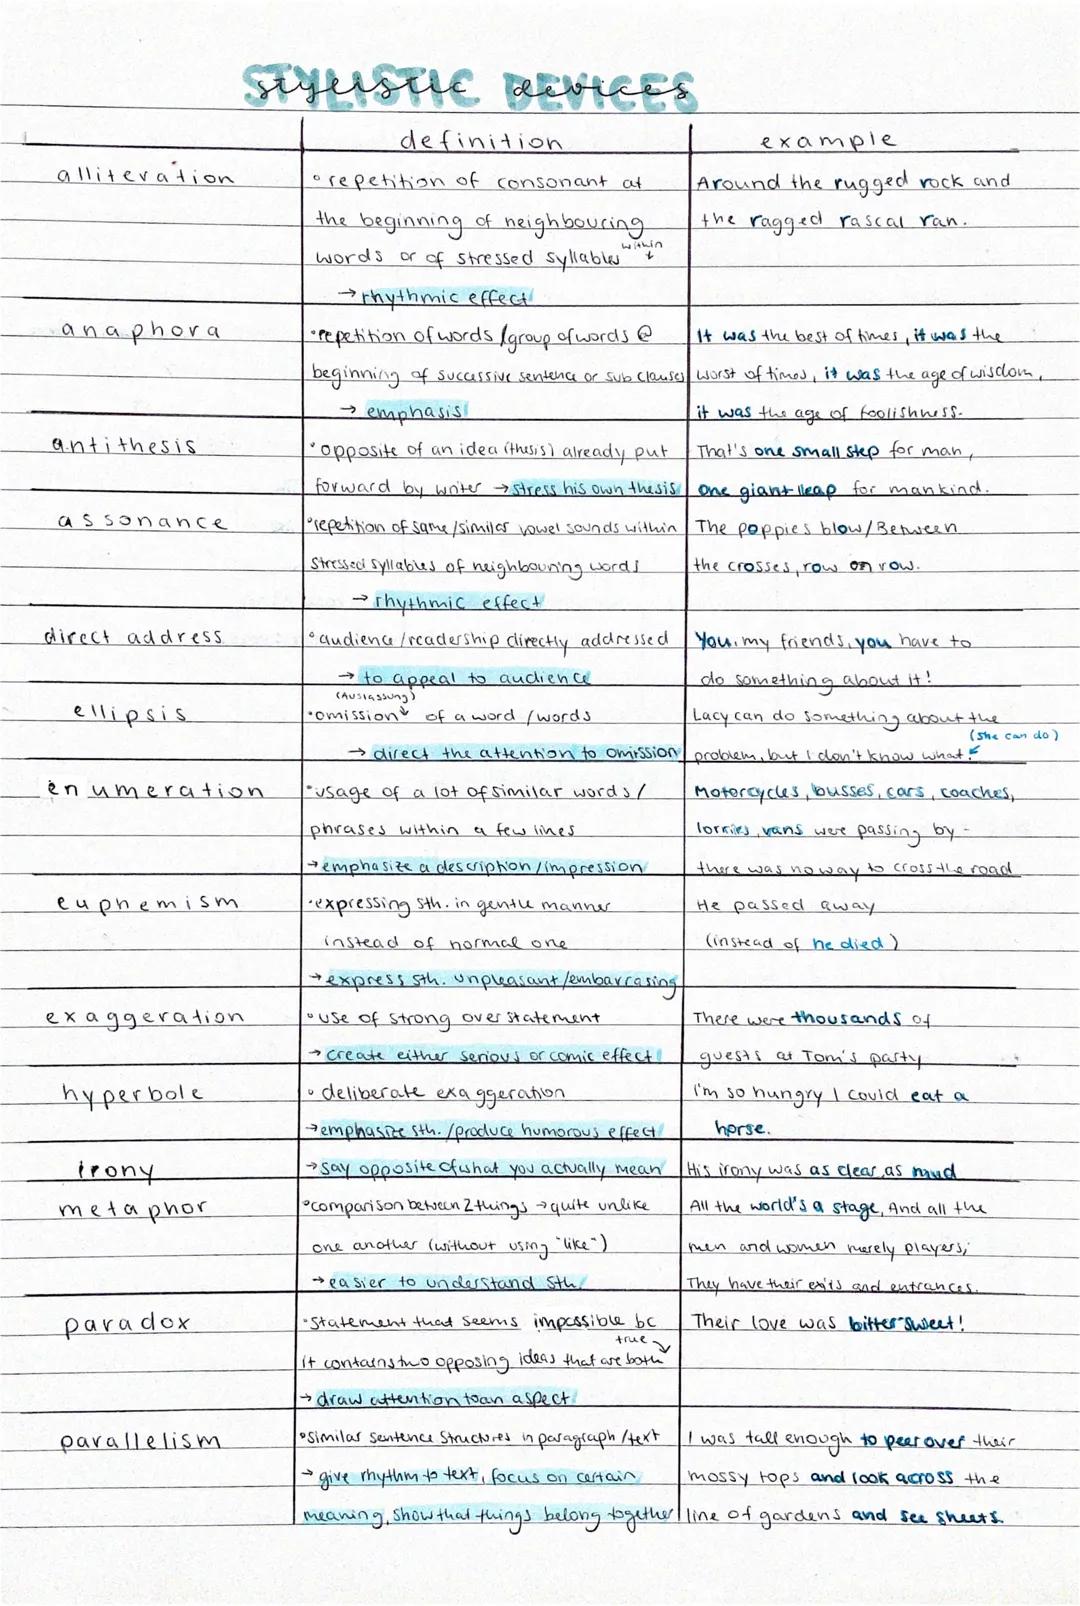 STYLISTIC DEVICES
stylistic devices
definition example
alliteration • repetition of consonant at Around the rugged rock and
the beginning of neighbouring the ragged rascal ran.
within
words or of stressed syllables
→ rhythmic effect
anaphora • repetition of words / group of words @ It was the best of times, it was the
beginning of successive sentence or sub clauses worst of times, it was the age of wisdom,
→ emphasis it was the age of foolishness.
antithesis • opposite of an idea (thesis) already put That's one small step for man,
forward by writer → stress his own thesis one giant leap for mankind.
assonance • repetition of same/similar vowel sounds within The poppies blow/Between
stressed syllables of neighbouring words the crosses, row on row.
→ rhythmic effect
direct address • audience/readership directly addressed You, my friends, you have to
→ to appeal to audience do something about it!
(Auslassung)
ellipsis • omission of a word / words Lacy can do something about the
(she can do)
→ direct the attention to omission problem, but I don't know what.
enumeration • usage of a lot of similar words / Motorcycles, busses, cars, coaches,
phrases within a few lines lorries, vans were passing by -
→ emphasize a description/impression there was no way to cross the road
euphemism • expressing sth. in gentle manner He passed away
instead of normal one (instead of he died)
→ express sth. unpleasant/embarrasing
exaggeration • use of strong overstatement There were thousands of
→ create either serious or comic effect guests at Tom's party
hyperbole • deliberate exaggeration I'm so hungry I could eat a
→ emphasize sth./produce humorous effect horse.
irony → say opposite of what you actually mean His irony was as clear as mud
metaphor • comparison between 2 things → quite unlike All the world's a stage, And all the
one another (without using "like") men and women merely players;
→ easier to understand sth. They have their exits and entrances.
paradox • statement that seems impossible bc Their love was bitter sweet!
true
it contains two opposing ideas that are both
→ draw attention to an aspect
parallelism • similar sentence structures in paragraph/text I was tall enough to peer over their
→ give rhythm to text, focus on certain mossy tops and look across the
meaning, show that things belong together line of gardens and see sheets.